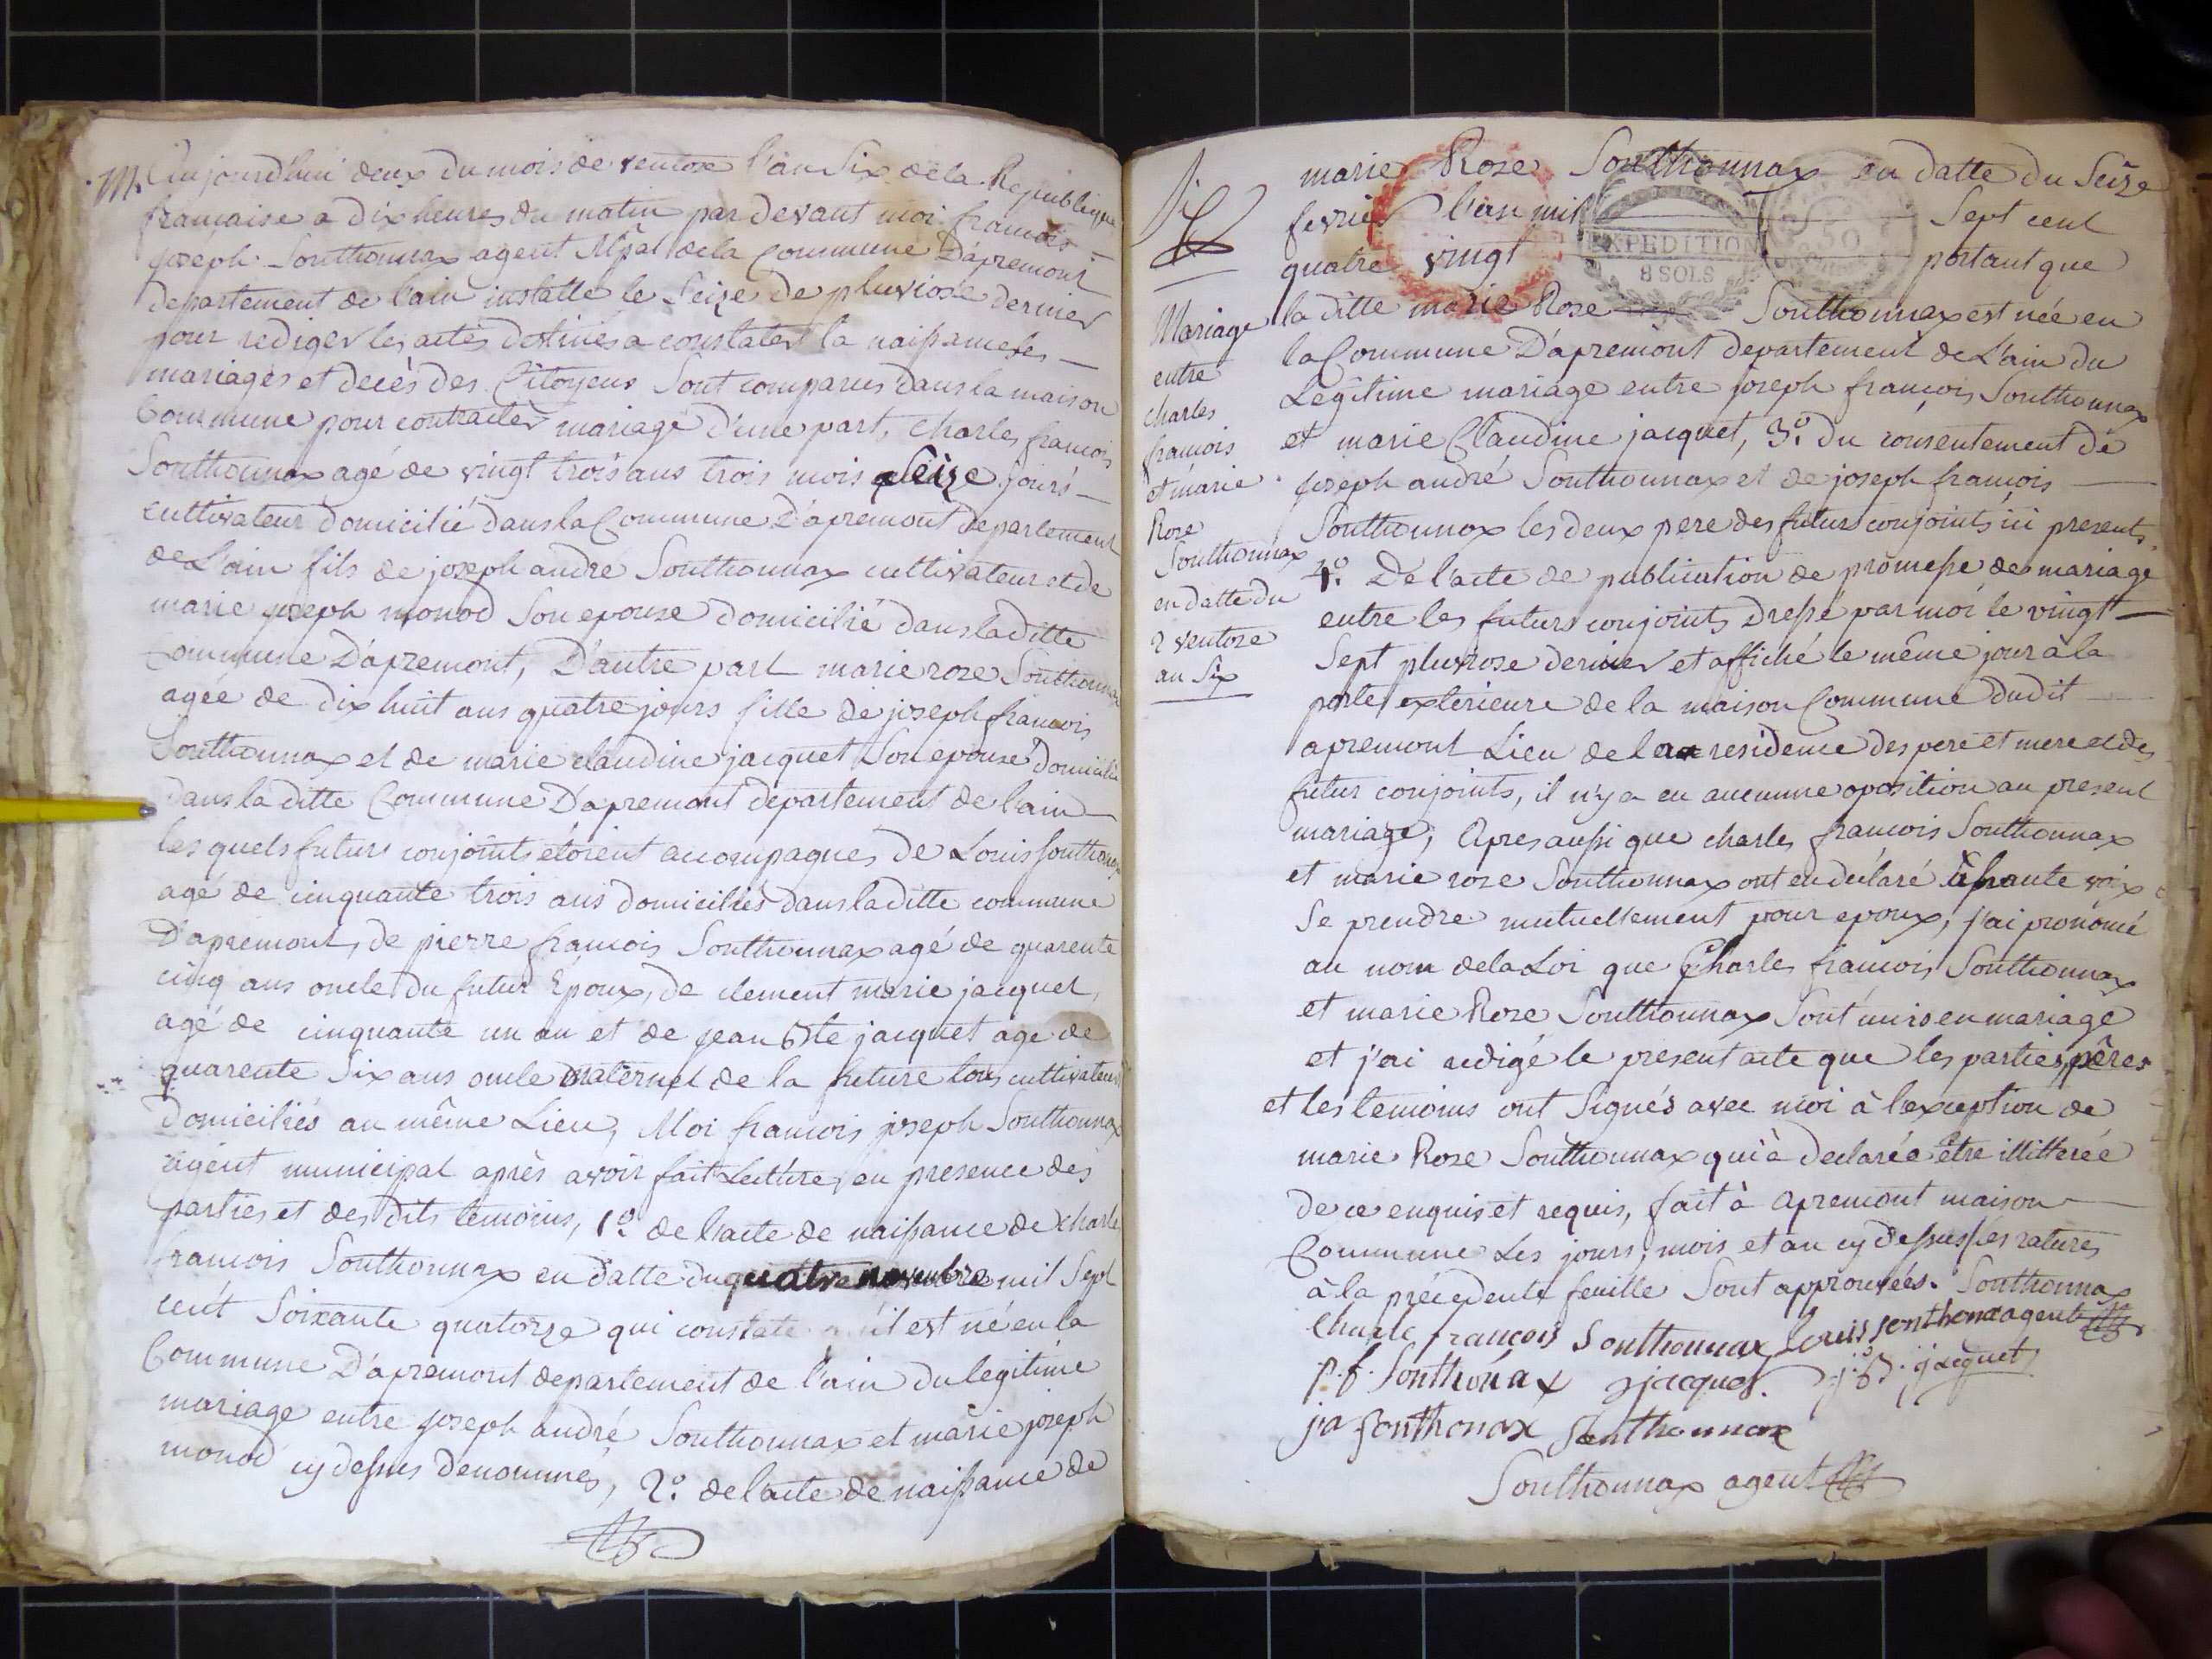 M. Aujourd'hui deux du mois de ventose l'an Six de la Republique
francaise a dix heures du matin par devant moi francois
joseph Sonthonnax agent M.pal de la Commune D'apremont
departement de l'ain installe le Seize de pluviose dernier
pour rediger les actes destinés a constater la naissances
mariages et decès des Citoyens Sont comparus dans la maison
Commune pour contracter mariage d'une part, charles francois
Sonthonnax agé de vingt trois ans trois mois Seize jours
cultivateur domicilié dans la Commune D'apremont departement
de L'ain fils de joseph andré Sonthonnax cultivateur et de
marie joseph monod Son epouse domicilié dans la ditte
Commune D'apremont, D'autre part marie roze Sonthonnax
agée de dix huit ans quatre jours fille de joseph francois
Sonthonnax et de marie claudine jacquet Son epouse domicilié
dans la ditte Commune D'apremont departement de l'ain
les quels futurs conjoints étoient accompagnes de Louis Sonthonnax
agé de cinquante trois ans domiciliés dans la ditte commune
D'apremont, de pierre francois Sonthonnax agé de quarente
cinq ans oncle du futur Epoux, de clement marie jacquet
agé de cinquante un an et de jean Bte jacquet age de
quarente Six ans oncle maternel de la future tous cultivateurs
domiciliés au même Lieu, Moi francois joseph Sonthonnax
agent municipal après avoir fait Lecture en presence des
parties et des dits temoins, 1.º de l'acte de naissance de charle
francois Sonthonnax en datte du quatre novembre mil Sept
cent Soixante quatorze qui constate qu'il est né en la
Commune D'apremont departement de l'ain du legitime
mariage entre joseph andré Sonthonnax et marie joseph
monod cy dessus denommés, 2.º de l'acte de naissance de
Mariage
entre
charles
francois
et marie
Roze
Sonthonnax
en datte du
2 ventoze
an Six
marie Roze Sonthonnax en datte du Seize
fevrier l'an mil Sept cent
quatre vingt portant que
EXPEDITION
8 SOLS
50
la ditte marie Roze Sonthonnax est née en
la Commune D'apremont departement de L'ain du
Legitime mariage entre joseph francois Sonthonnax
et marie Claudine jacquet, 3.º du consentement de
joseph andré Sonthonnax et de joseph francois
Sonthonnox les deux pere des futurs conjoints ici presents
4.º De l'acte de publication de promesse de mariage
entre les futurs conjoints dressé par moi le vingt
Sept pluviose dernier et affiché le même jour à la
porte exterieure de la maison Commune dudit
apremont Lieu de la residence des pere et mere et des
futur conjoints, il n'y a eu aucunne oposition au present
mariage; Apres aussi que charles francois Sonthonnax
et marie roze Sonthonnax ont eu déclaré à haute voix
Se prendre mutuellement pour epoux, j'ai prononcé
au nom de la Loi que Charles francois Sonthonnax
et marie Roze Sonthonnax Sont unis en mariage
et j'ai redigé le present acte que les parties, pères
et les temoins ont Signés avec moi à l'exception de
marie Roze Sonthonnax qui à declarée être illitterée
de ce enquis et requis, fait à apremont maison
Commune Les jours, mois et an cy dessus les ratures
à la précedente feuille Sont approuvées. Sonthonnax
Charle francois Sonthonnax louis sonthonax agent
p. f. Sonthonax jacquet. j. B. jacquet
ja Sonthonax Sonthonnax
Sonthonnax agent